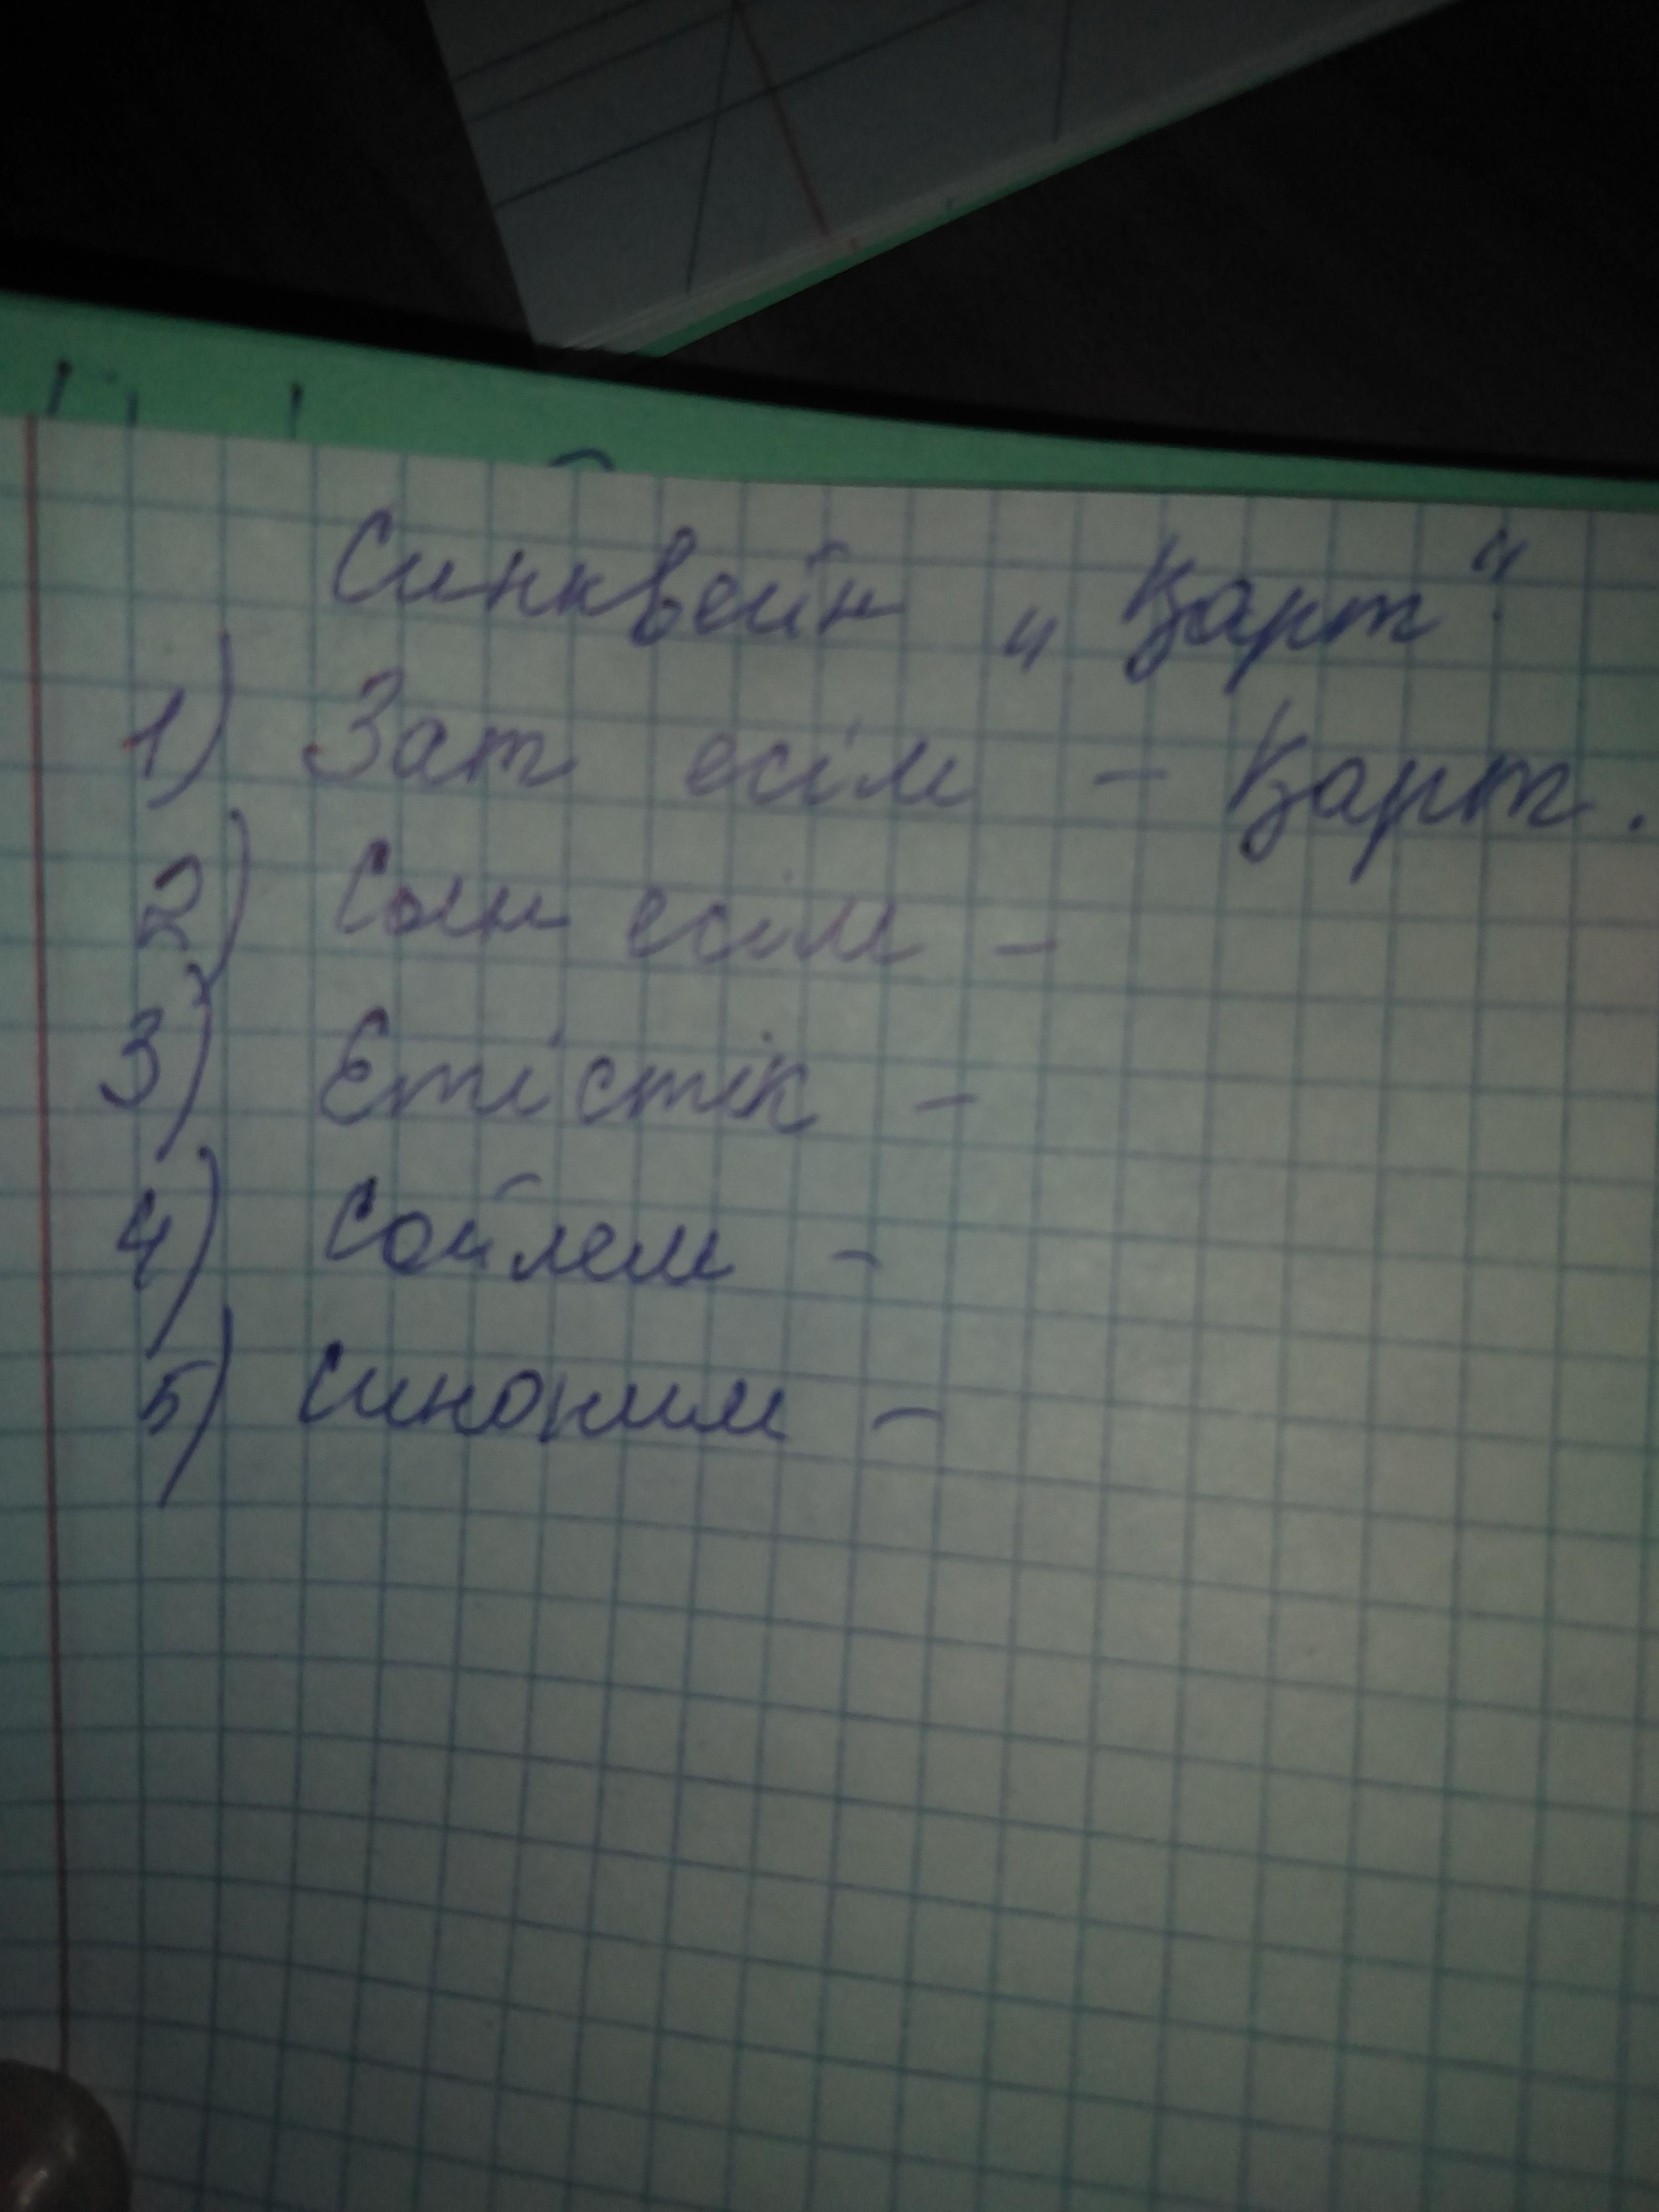 Синквейн „Қарт"
1) Зат есім – Қарт.
2) Сын есім –
3) Етістік –
4) Сойлем –
5) Синоним –